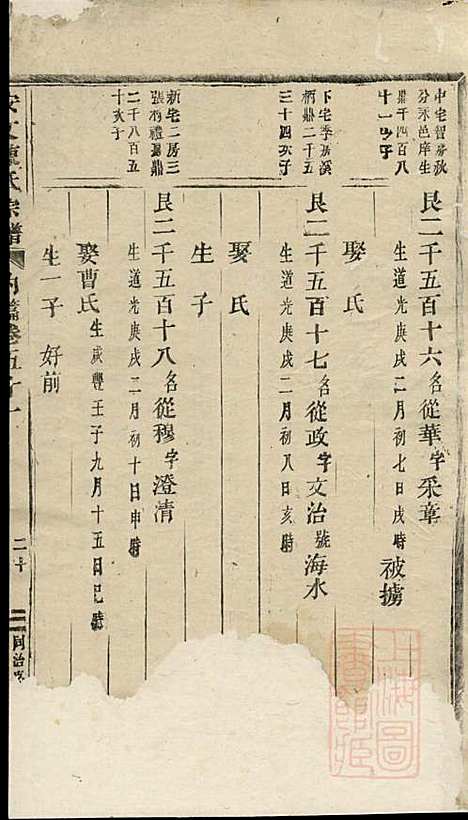 中宅智房秋
分永邑庠生
鼎千四百八
十一子
艮二千五百十六名從華字采章
生道光庚戌二月初七日戌時 被擄
娶 氏
下宅季房溪
柄鼎二千五
三十四次子
艮二千五百十七名從政字文治號海水
生道光庚戌二月初八日亥時
娶 氏
生 子
新宅二房三
張柄禮溫鼎
二千八百五
十次子
艮二千五百十八名從穆字澄清
生道光庚戌二月初十日申時
娶曹氏生咸豐壬子九月十五日巳時
生一子 好前
陳氏宗譜
內篇卷五十一
二十
同治
上海圖
書館藏